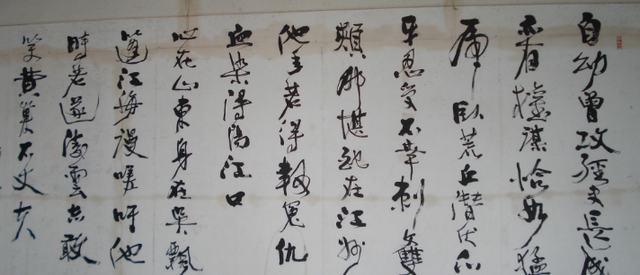 自幼曾攻經史長成
亦有權謀恰如猛
虎臥荒丘潛伏爪
牙忍受不幸刺文雙
頰那堪配在江州
他年若得報冤仇
血染潯陽江口
心在山東身在吳飄
蓬江海謾嗟吁他
時若遂凌雲志敢
笑黃巢不丈夫